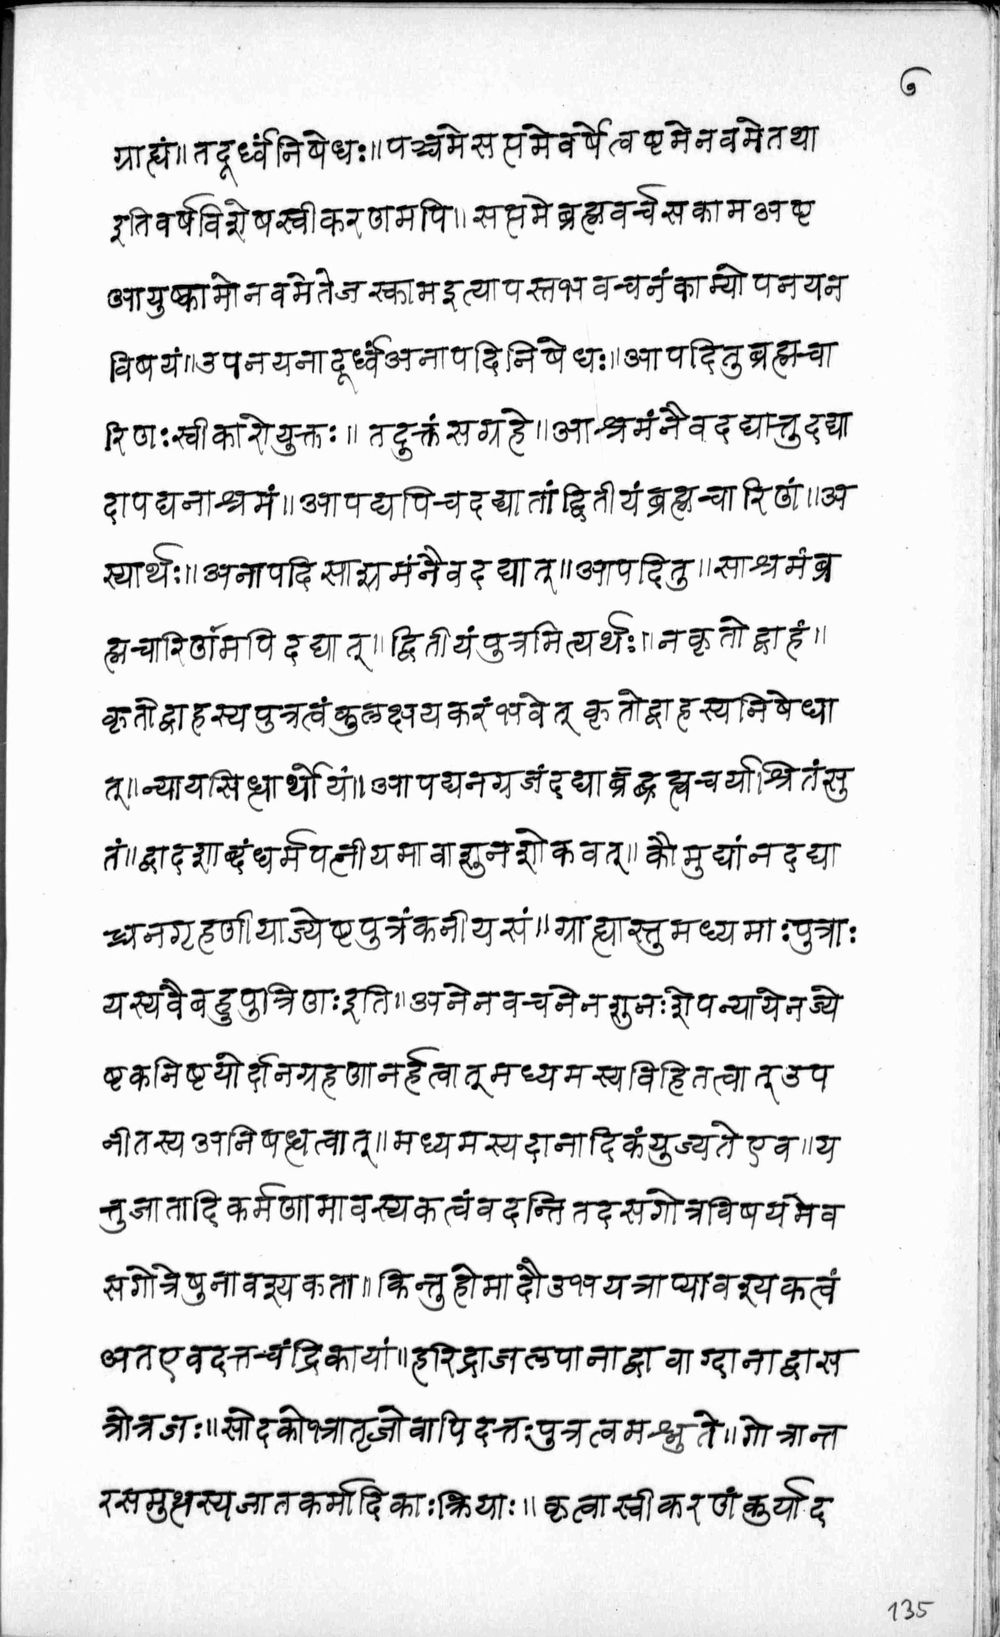 ७
ग्राह्यं॥तदूर्ध्वंनिषेधः॥पञ्चमेसप्तमेवर्षेत्वष्टमेनवमेतथा
इतिवर्षविशेषस्वीकरणमपि॥सप्तमेब्रह्मवर्चसकामअष्ट
आयुष्कामोनवमेतेजस्कामइत्यापस्तम्भवचनंकाम्योपनयन
विषयं॥उपनयनादूर्ध्वंअनापदिनिषेधः॥आपदितुब्रह्मचा
रिणःस्वीकारोयुक्तः॥तदुक्तंसग्रहे॥आश्रमंनैवदद्यात्तुदद्या
दापद्यनाश्रमं॥आपद्यपिचदद्यातांद्वितीयंब्रह्मचारिणं॥अ
स्यार्थः॥अनापदिसाश्रमंनैवदद्यात्॥आपदितु॥साश्रमंब्र
ह्मचारिणंमपिदद्यात्॥द्वितीयंपुत्रमित्यर्थः॥नकृतोद्वाहं॥
कृतोद्वाहस्यपुत्रत्वंकुलक्षयकरंभवेत्कृतोद्वाहस्यनिषेधा
त्॥न्यायसिध्यार्थोयं॥आपद्यनग्रजंदद्याब्रद्ब्रह्मचर्याश्रितंसु
तं॥द्वादशाब्दंधर्मपत्नीयमावाशुनशेकवत्॥कौमुद्यांनदद्या
च्चनगृहणीयाज्येष्टपुत्रंकनीयसं॥ग्राह्यास्तुमध्यमाःपुत्राः
यस्यवैबहुपुत्रिणःइति॥अनेनवचनेनशुनःशेपन्यायेनज्ये
ष्टकनिष्टयोर्दानग्रहणानर्हत्वात्मध्यमस्यविहितत्वात्उप
नीतस्यअनिषध्यत्वात्॥मध्यमस्यदानादिकंयुज्यतेएव॥य
त्तुजातादिकर्मणामावस्यकत्वंवदन्तितदसगोत्रविषयमेव
सगोत्रेषुनावश्यकता॥किन्तुहोमादौउभयत्राप्यावश्यकत्वं
अतएवदत्तचंद्रिकायां॥हरिद्राजलपानाद्वावाग्दानाद्वास
त्रोत्रजः॥सोदकोभ्रातृजोवापिदत्तःपुत्रत्वमश्नुते॥गोत्रान्त
रसमुत्थस्यजातकर्मादिकाःक्रियाः॥कृत्वास्वीकरणंकुर्याद
135